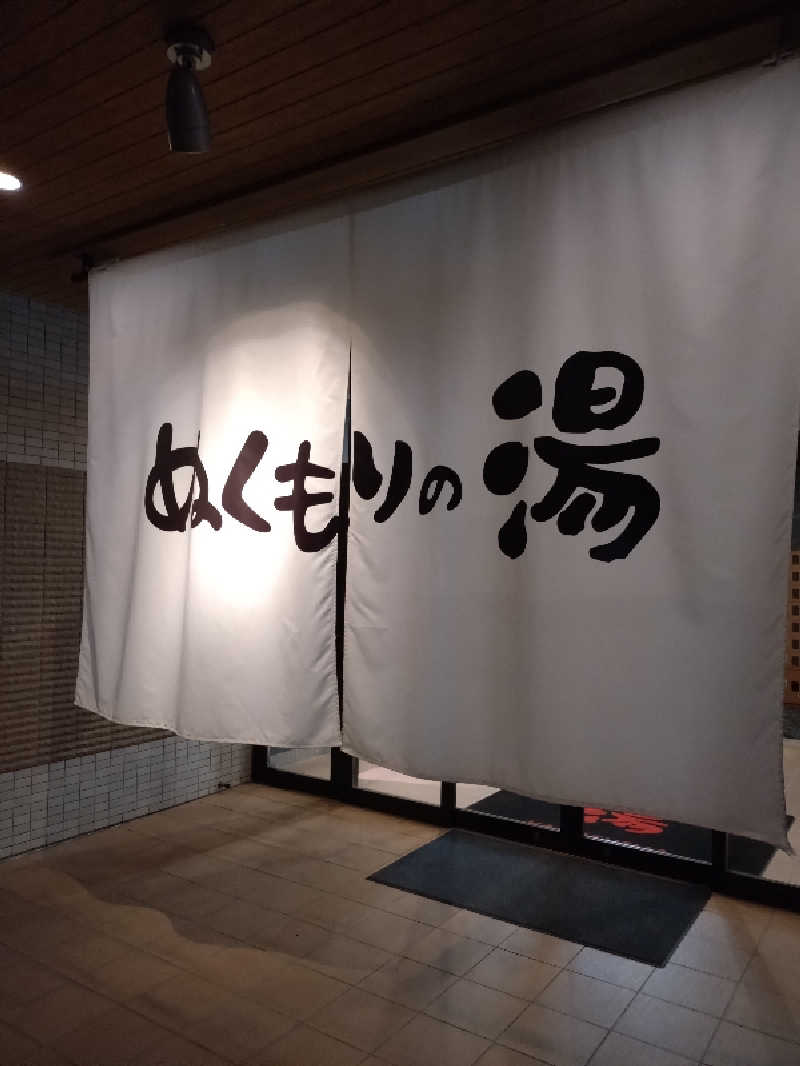 ぬくもりの湯